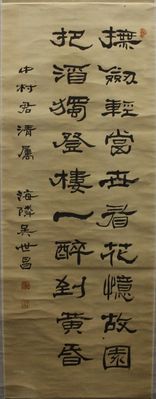 撫劒輕當世看花憶故園
把酒獨登樓一醉到黃昏
中村君清屬
海隣吳世昌